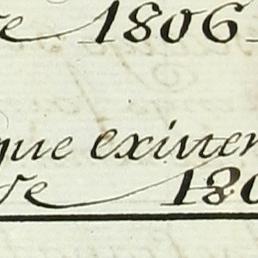 de 1806
que existen
de 180